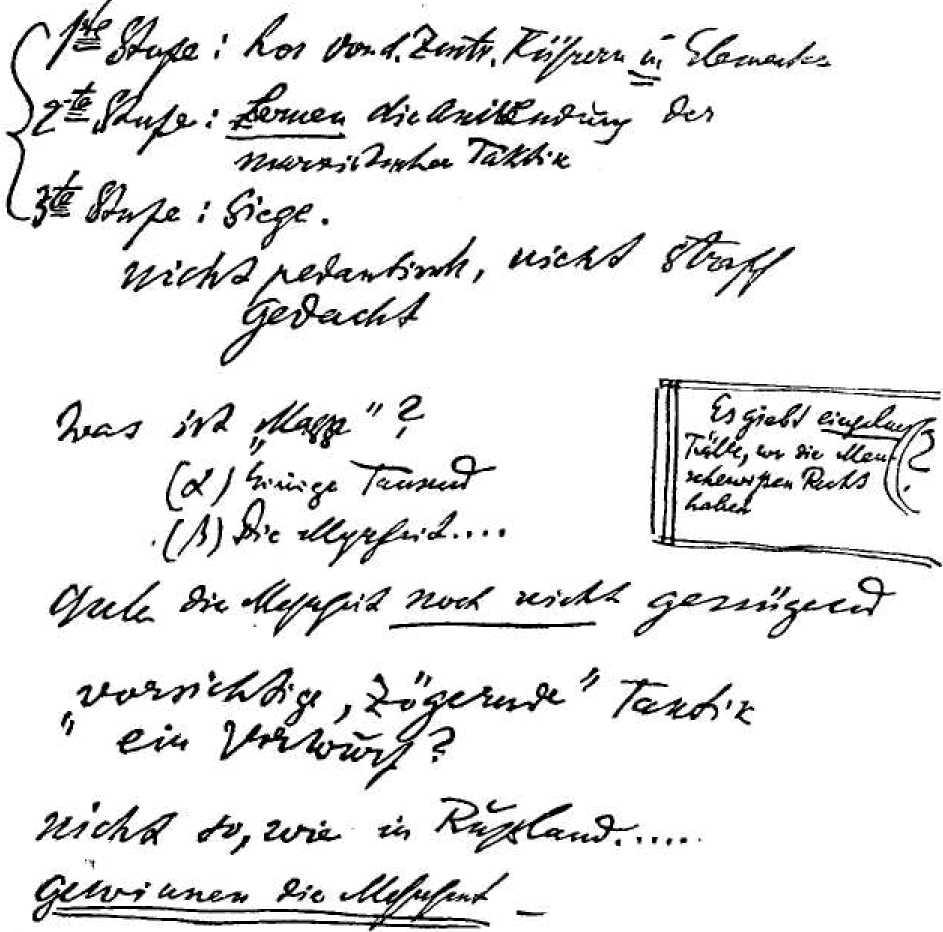 1te Stufe: Los von d. Zentr. Führern u. Elementen
2-te Stufe: Lernen die Anwendung der
marxistischen Taktik
3te Stufe: Siege.
nicht pedantisch, nicht straff
Gedacht
Was ist „Masse“?
(α) Einige Tausend
(β) Die Mehrheit....
Es giebt einzelne
Fälle, wo die Men-
schewisten Recht
haben
?
Auch die Mehrheit noch nicht genügend
„vorsichtige, zögernde“ Taktik
ein Vorwurf?
nicht so, wie in Rußland.....
Gewinnen die Mehrheit —